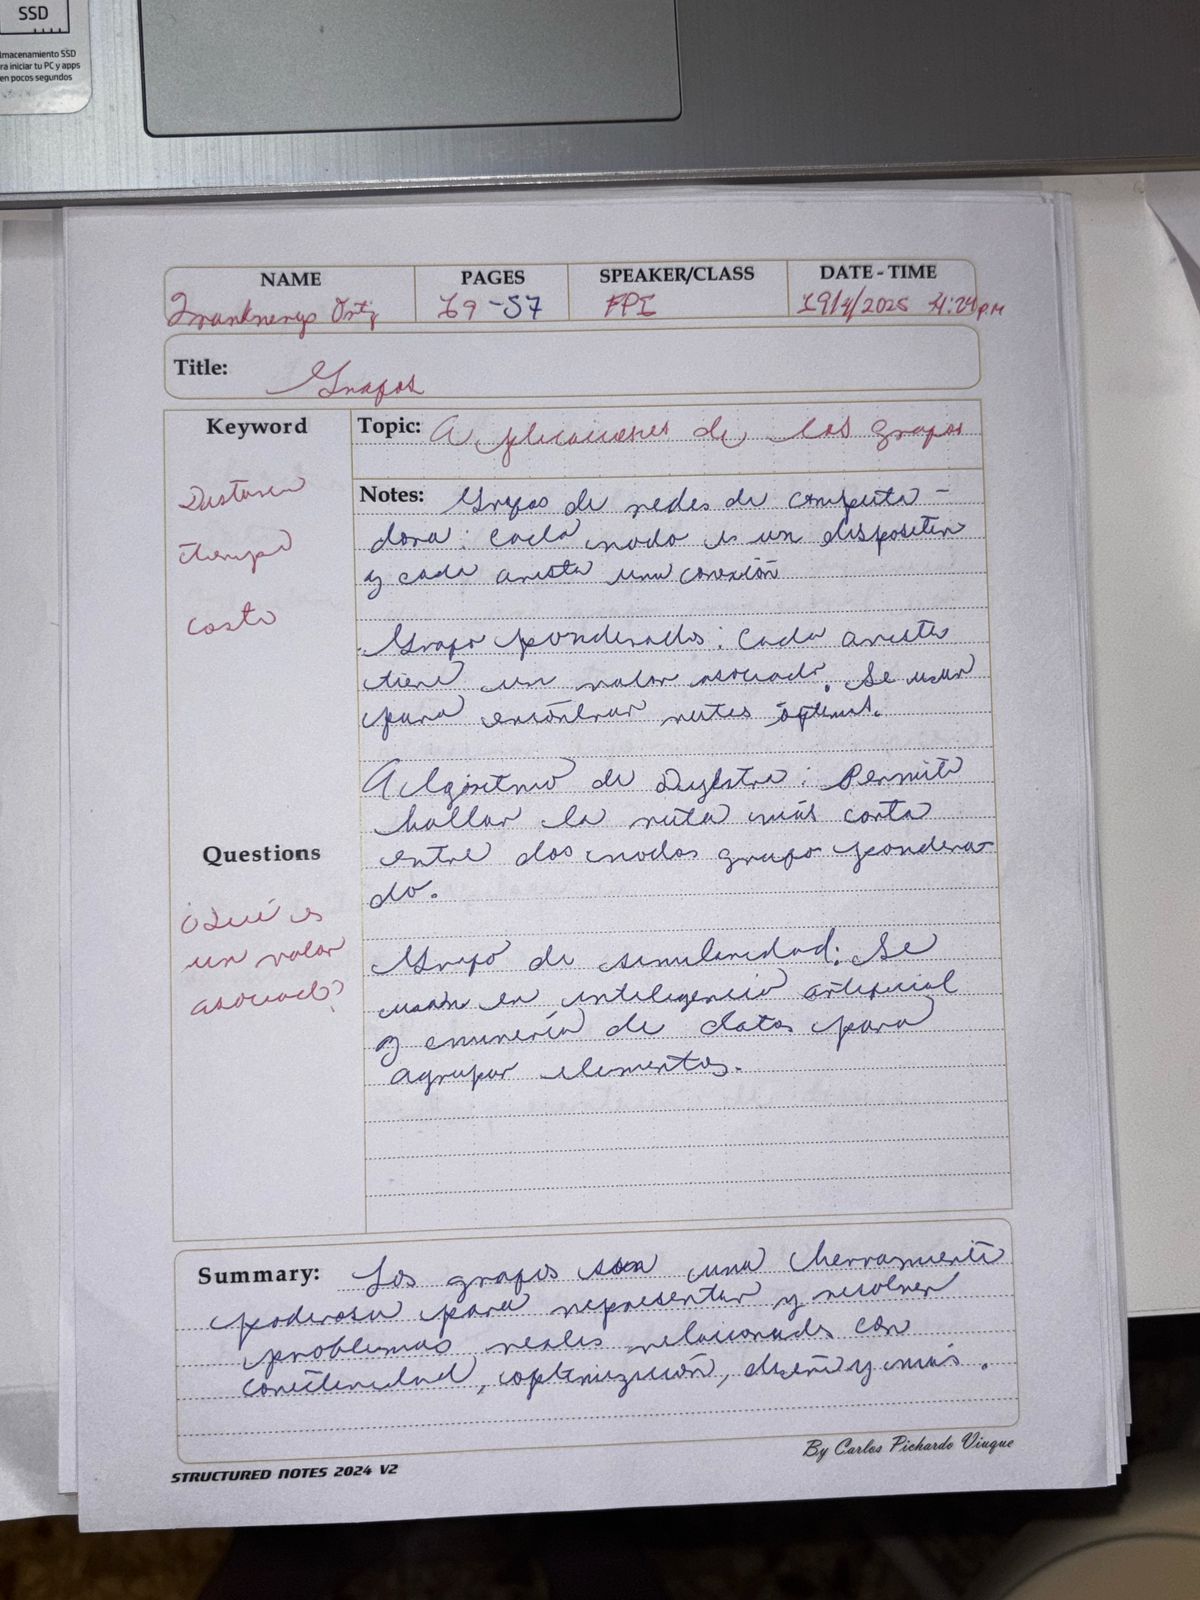 SSD
lmacenamiento SSD
ra iniciar tu PC y apps
en pocos segundos
NAME
PAGES
SPEAKER/CLASS
DATE - TIME
Franknerys Ortiz
19 - 57
FPI
19/4/2025 4:24 P.M
Title:
Grafos
Keyword
Topic: Aplicaciones de los grafos
Distancia
tiempo
costo
Notes: Grafos de redes de computa-
dora: Cada nodo es un dispositivo
y cada arista una conexión
Grafo ponderados: Cada arista
tiene un valor asociado. Se usan
para encontrar rutas óptimas.
Algoritmo de Dijkstra: Permite
hallar la ruta más corta
entre dos nodos grafo pondera-
do.
Questions
¿Qué es
un valor
asociado?
Grafo de similaridad: Se
usan en inteligencia artificial
y minería de datos para
agrupar elementos.
Summary: Los grafos son una herramienta
poderosa para representar y resolver
problemas reales relacionados con
conectividad, optimización, diseño y más.
By Carlos Pichardo Viuque
STRUCTURED NOTES 2024 V2